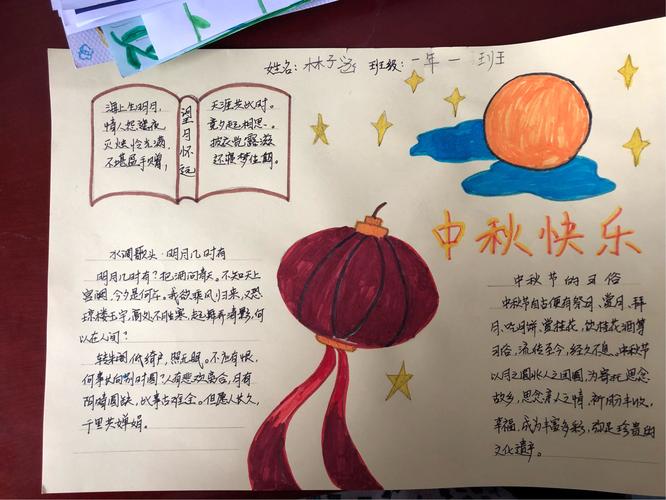 姓名：林子涵 班级：一年一班
海上生明月，
情人怨遥夜
灭烛怜光满，
不堪盈手赠，
望月怀远
天涯共此时。
竟夕起相思。
披衣觉露滋
还寝梦佳期。
中秋快乐
水调歌头·明月几时有
明月几时有？把酒问青天。不知天上
宫阙，今夕是何年。我欲乘风归来，又恐
琼楼玉宇，高处不胜寒，起舞弄清影，何
以在人间？
转朱阁，低绮户，照无眠。不应有恨，
何事长向别时圆？人有悲欢离合，月有
阴晴圆缺，此事古难全。但愿人长久，
千里共婵娟。
中秋节的习俗
中秋节自古便有祭月、赏月、拜
月、吃月饼、赏桂花、饮桂花酒等
习俗，流传至今，经久不息。中秋节
以月之圆兆人之团圆，为寄托思念
故乡，思念亲人之情，祈盼丰收、
幸福，成为丰富多彩，弥足珍贵的
文化遗产。